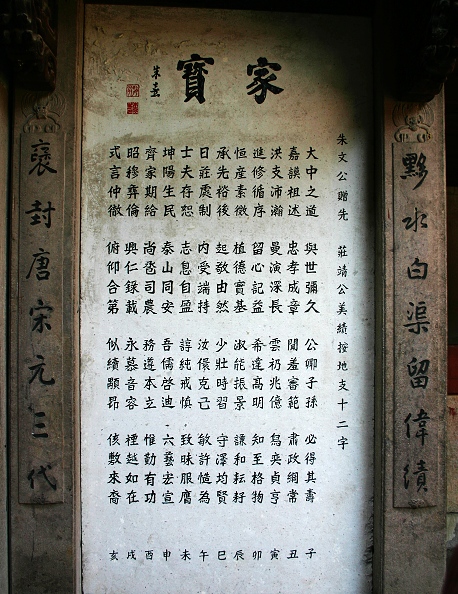 家寶
朱熹
黟水白渠留偉績
朱文公贈先 莊靖公美績按地支十二字
大中之道 與世彌久 公卿子孫 必得其壽 子
嘉謨祖述 忠孝成章 閨羞審範 肅政綱常 丑
洪支沛瀚 曼演深長 雲礽兆億 舄奕貞亨 寅
進修循序 留心記益 希達高明 知至格物 卯
恒產素微 植德實基 淑能振景 謙和耘耔 辰
承先裕後 起敬由然 少壯時習 守澤均賢 巳
日莊虔制 內受端持 汝儇克己 敏許慥為 午
士夫存恕 志息自盈 諄純戒慎 致昧服膺 未
坤陽生民 泰山同安 吾儒啓迪 六藝宏宣 申
齊家期給 尚嗇司農 務遵本立 惟勤有功 酉
昭穆彝倫 興仁錄載 永慕音容 禋越如在 戌
式言仲徽 俯仰合第 似續顒昂 侅敷來裔 亥
褒封唐宋元三代